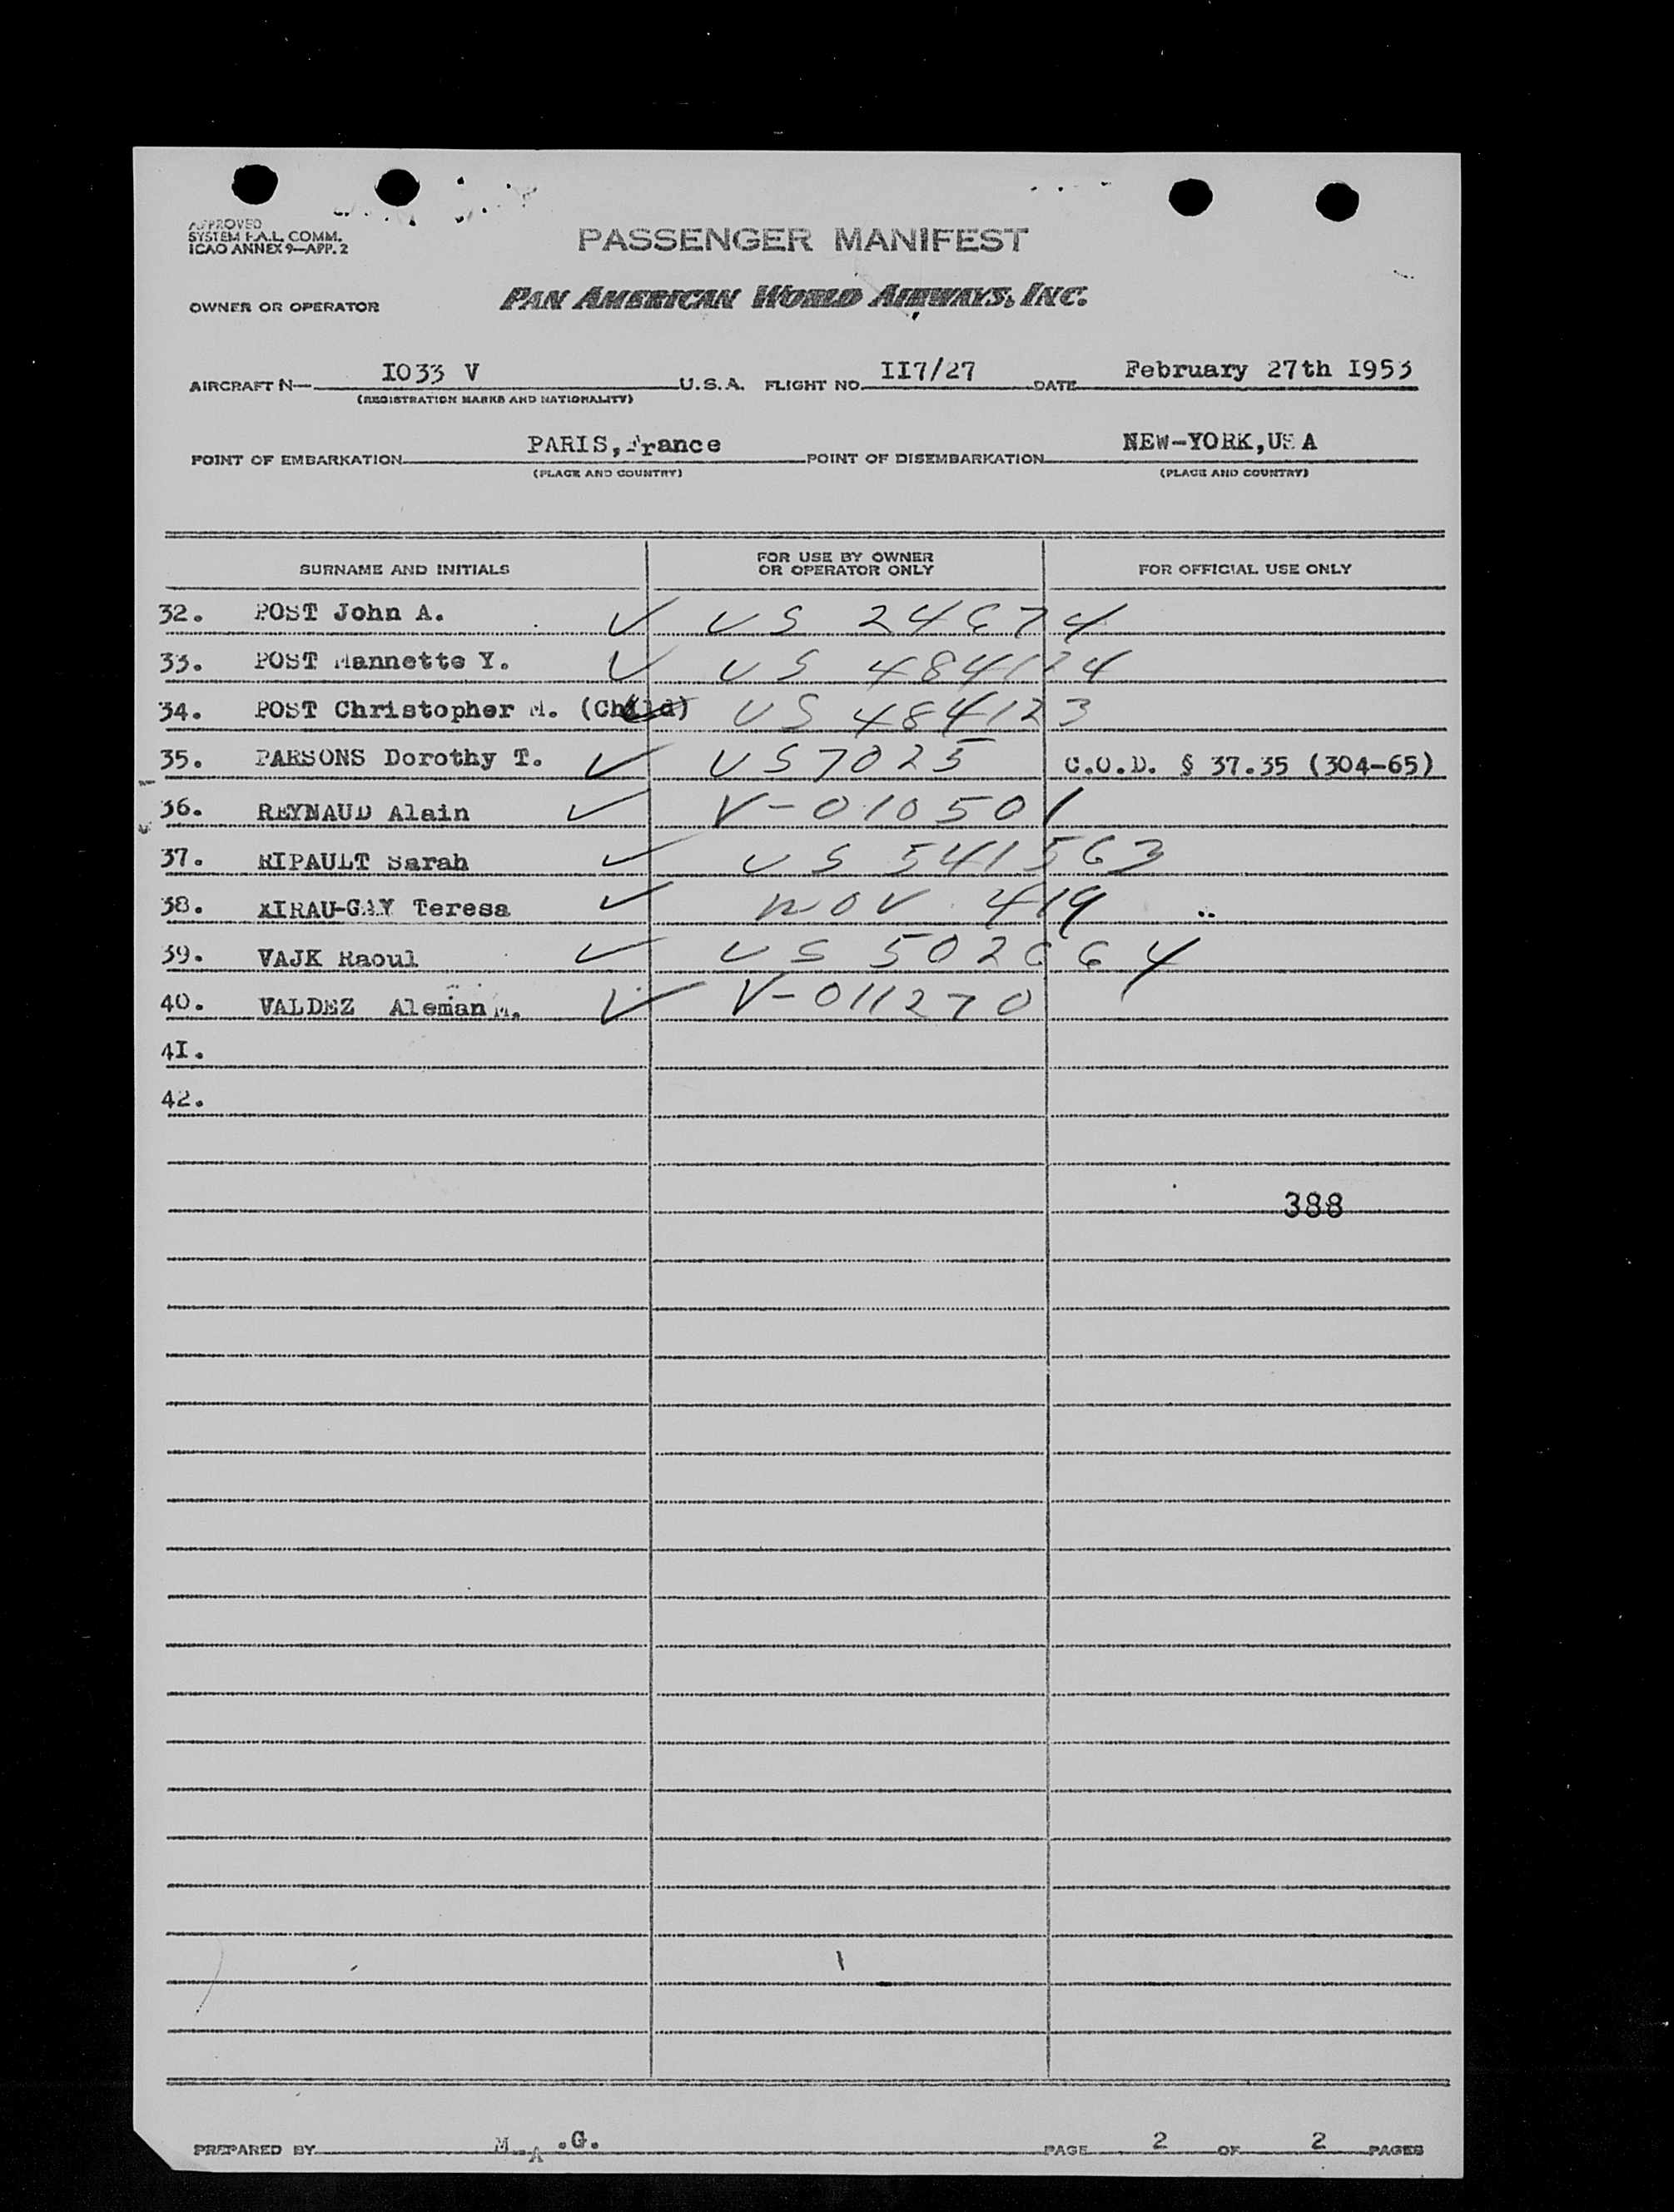 APPROVED
SYSTEM F.A.L. COMM.
ICAO ANNEX 9—APP. 2
PASSENGER MANIFEST
OWNER OR OPERATOR PAN AMERICAN WORLD AIRWAYS, INC.
AIRCRAFT N— I033 V U.S.A. FLIGHT NO. II7/27 DATE February 27th I953
(REGISTRATION MARKS AND NATIONALITY)
POINT OF EMBARKATION PARIS, France POINT OF DISEMBARKATION NEW-YORK, USA
(PLACE AND COUNTRY) (PLACE AND COUNTRY)
SURNAME AND INITIALS FOR USE BY OWNER OR OPERATOR ONLY FOR OFFICIAL USE ONLY
32. POST John A. ✓ US 24674
33. POST Mannette Y. ✓ US 484124
34. POST Christopher M. (Child) ✓ US 484123
35. PARSONS Dorothy T. ✓ US 7025 C.O.D. § 37.35 (304-65)
36. REYNAUD Alain ✓ V-010501
37. RIPAULT Sarah ✓ US 541563
38. XIRAU-GAY Teresa ✓ NOV 419
39. VAJK Raoul ✓ US 502664
40. VALDEZ Aleman M. ✓ V-011270
4I.
42.
388
PREPARED BY M.A.G. PAGE 2 OF 2 PAGES